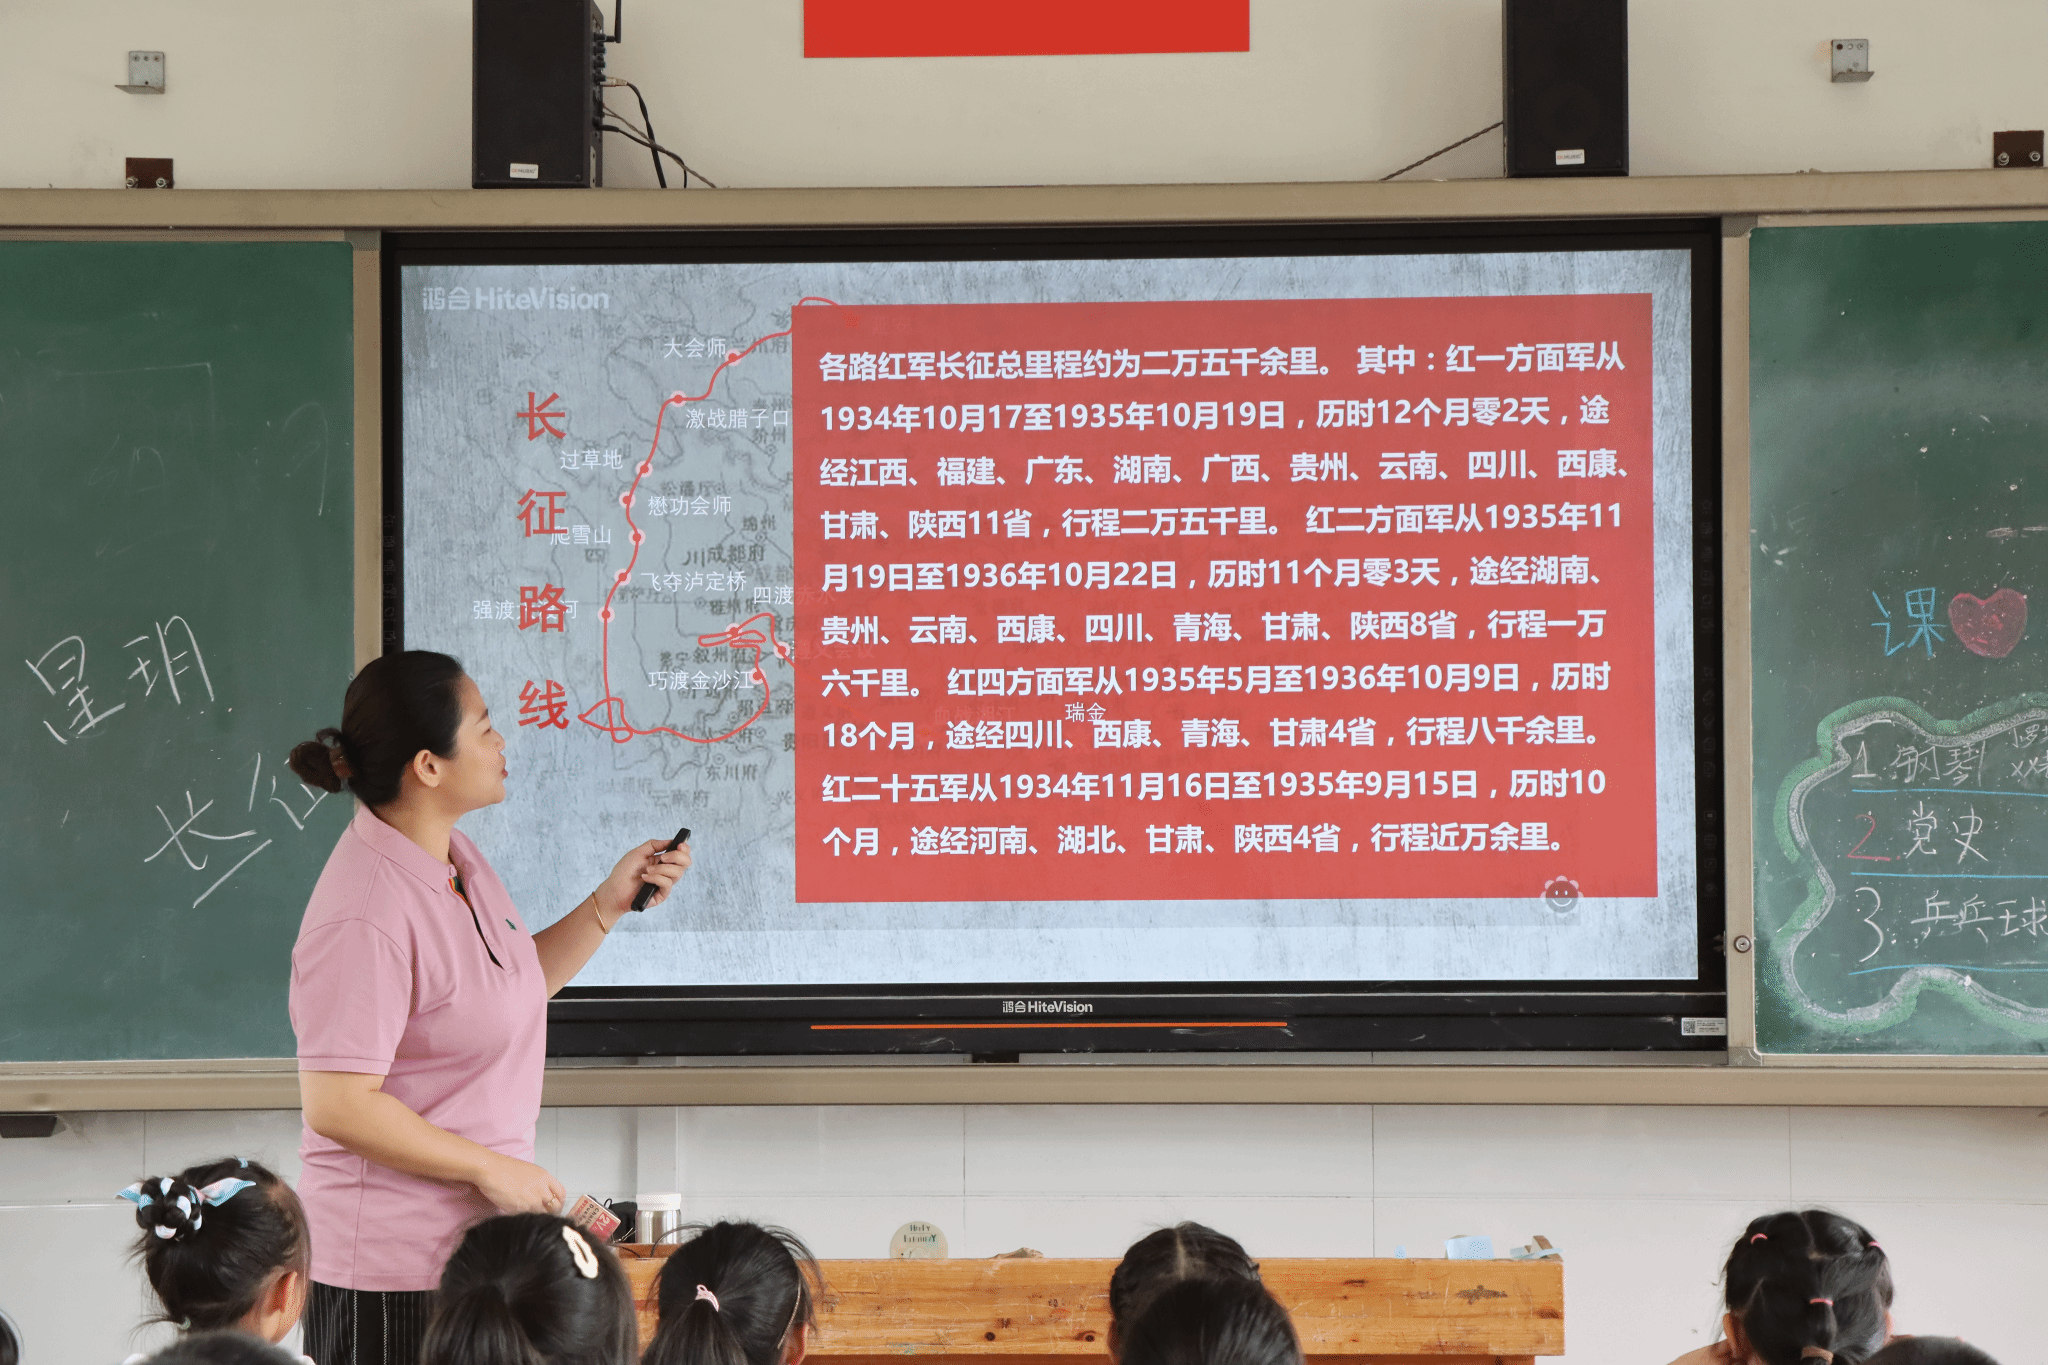 鸿合HiteVision
大会师
激战腊子口
过草地
懋功会师
爬雪山
飞夺泸定桥
四渡赤水
强渡
巧渡金沙江
瑞金
长征路线
成都府
叙州
东川府
云南府
各路红军长征总里程约为二万五千余里。 其中：红一方面军从
1934年10月17至1935年10月19日，历时12个月零2天，途
经江西、福建、广东、湖南、广西、贵州、云南、四川、西康、
甘肃、陕西11省，行程二万五千里。 红二方面军从1935年11
月19日至1936年10月22日，历时11个月零3天，途经湖南、
贵州、云南、西康、四川、青海、甘肃、陕西8省，行程一万
六千里。 红四方面军从1935年5月至1936年10月9日，历时
18个月，途经四川、西康、青海、甘肃4省，行程八千余里。
红二十五军从1934年11月16日至1935年9月15日，历时10
个月，途经河南、湖北、甘肃、陕西4省，行程近万余里。
鸿合HiteVision
星玥
长征
课
1.钢琴
2.党史
3.乒乓球